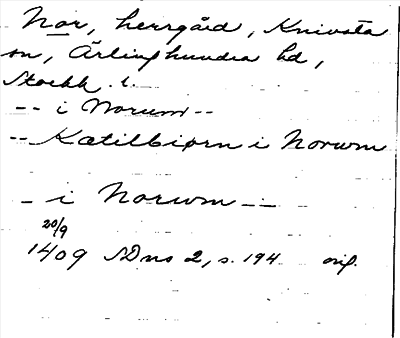 Nor, herrgård, Knivsta
sn, Ärlinghundra hd,
Stockh. l.
-- i Norum --
-- Katilbiorn i Norum
-- i Norum --
20/9
1409 SDns 2, s. 194 orig.